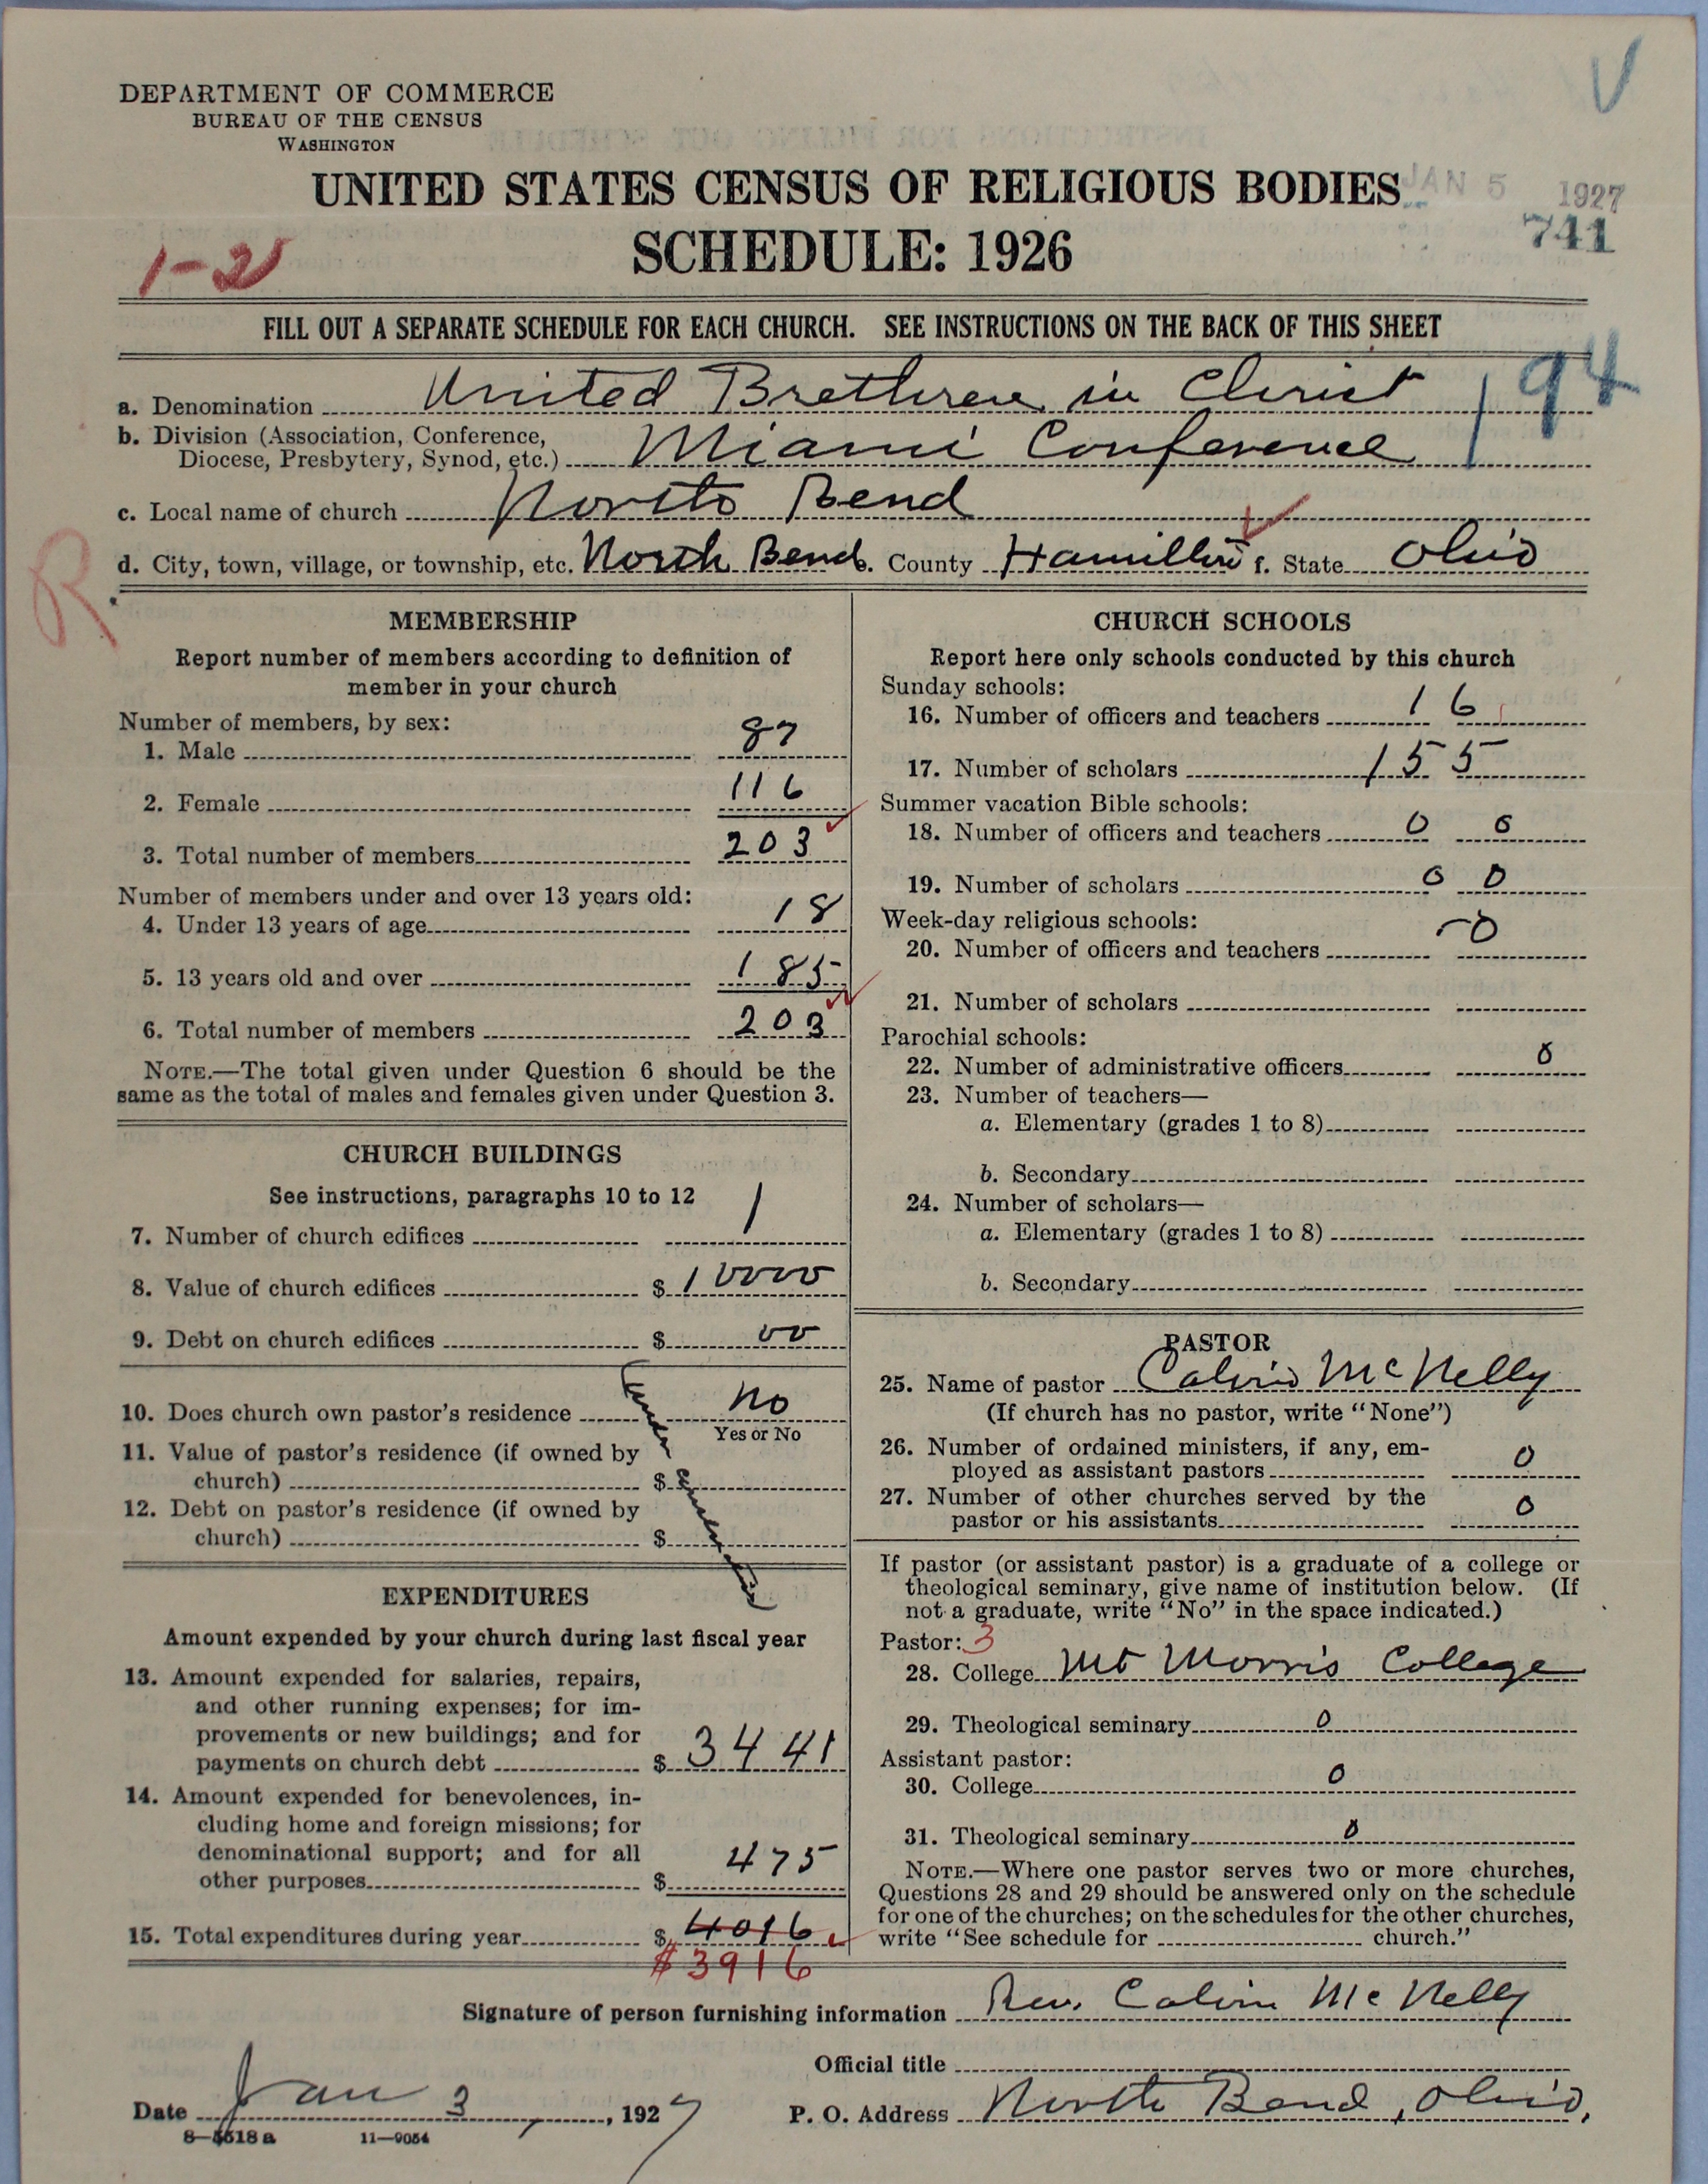 DEPARTMENT OF COMMERCE
BUREAU OF THE CENSUS
WASHINGTON
UNITED STATES CENSUS OF RELIGIOUS BODIES
JAN 5 1927
SCHEDULE: 1926
741
1-2
FILL OUT A SEPARATE SCHEDULE FOR EACH CHURCH. SEE INSTRUCTIONS ON THE BACK OF THIS SHEET
a. Denomination United Brethren in Christ
194
b. Division (Association, Conference,
Diocese, Presbytery, Synod, etc.) Miami Conference
c. Local name of church North Bend
d. City, town, village, or township, etc. North Bend e. County Hamilton f. State Ohio
R
MEMBERSHIP
Report number of members according to definition of
member in your church
Number of members, by sex:
1. Male 87
2. Female 116
3. Total number of members 203
Number of members under and over 13 years old:
4. Under 13 years of age 18
5. 13 years old and over 185
6. Total number of members 203
NOTE.—The total given under Question 6 should be the
same as the total of males and females given under Question 3.
CHURCH BUILDINGS
See instructions, paragraphs 10 to 12
7. Number of church edifices 1
8. Value of church edifices $ 10000
9. Debt on church edifices $ 00
10. Does church own pastor's residence no
Yes or No
11. Value of pastor's residence (if owned by
church) $
12. Debt on pastor's residence (if owned by
church) $
EXPENDITURES
Amount expended by your church during last fiscal year
13. Amount expended for salaries, repairs,
and other running expenses; for im-
provements or new buildings; and for
payments on church debt $ 3441
14. Amount expended for benevolences, in-
cluding home and foreign missions; for
denominational support; and for all
other purposes $ 475
15. Total expenditures during year $ 4016
$3916
CHURCH SCHOOLS
Report here only schools conducted by this church
Sunday schools:
16. Number of officers and teachers 16
17. Number of scholars 155
Summer vacation Bible schools:
18. Number of officers and teachers 0 0
19. Number of scholars 0 0
Week-day religious schools:
20. Number of officers and teachers 0
21. Number of scholars
Parochial schools:
22. Number of administrative officers 0
23. Number of teachers—
a. Elementary (grades 1 to 8)
b. Secondary
24. Number of scholars—
a. Elementary (grades 1 to 8)
b. Secondary
PASTOR
25. Name of pastor Calvin McNelly
(If church has no pastor, write "None")
26. Number of ordained ministers, if any, em-
ployed as assistant pastors 0
27. Number of other churches served by the
pastor or his assistants 0
If pastor (or assistant pastor) is a graduate of a college or
theological seminary, give name of institution below. (If
not a graduate, write "No" in the space indicated.)
Pastor: 3
28. College Mt Morris College
29. Theological seminary 0
Assistant pastor:
30. College 0
31. Theological seminary 0
NOTE.—Where one pastor serves two or more churches,
Questions 28 and 29 should be answered only on the schedule
for one of the churches; on the schedules for the other churches,
write "See schedule for church."
Signature of person furnishing information Rev. Calvin McNelly
Official title
Date Jan 3, 1927
P. O. Address North Bend, Ohio,
8-5518 a 11-9054